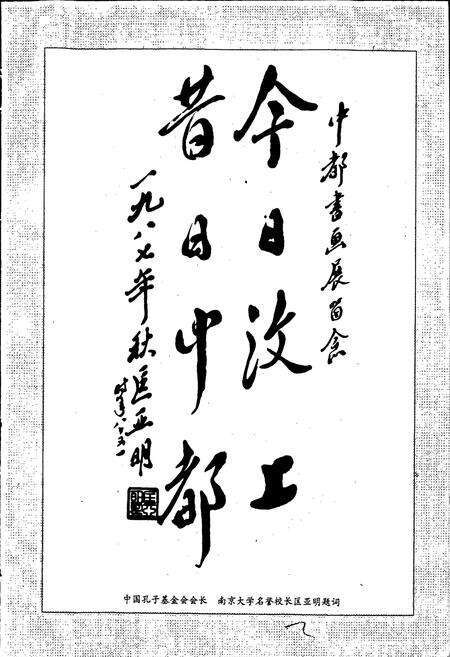 中都书画展留念
今日汶上
昔日中都
一九八七年秋匡亚明
时年八十又一
中国孔子基金会会长 南京大学名誉校长匡亚明题词